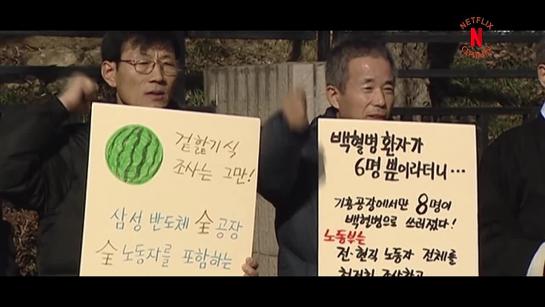 NETFLIX
N
겉핥기식
조사는 그만!
삼성 반도체 全 공장
全 노동자를 포함하는
백혈병 환자가
6명 뿐이라더니…
기흥공장에서만 8명이
백혈병으로 쓰러졌다!
노동부는
전·현직 노동자 전체를
철저히 조사하고